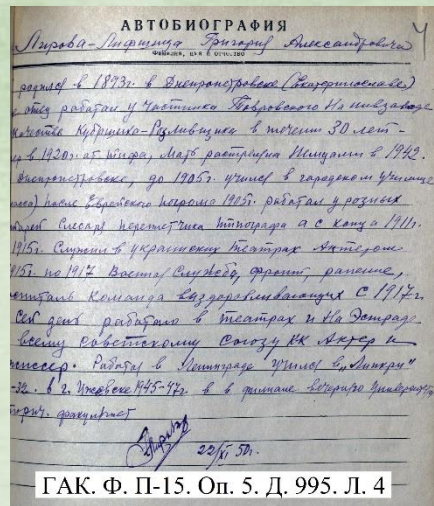 АВТОБИОГРАФИЯ
4
Лирова-Лифшица Григория Александровича
Фамилия, имя и отчество
родился в 1893г. в Днепропетровске (Екатеринославе)
отец работал у частника Повровского На пивзаводе
качестве Кубощика-Розливщика в течении 30 лет -
ер в 1920г. от тифа, Мать растреляна Немцами в 1942.
Днепропетровске, до 1905г. учился в городском училище
после Еврейского погрома 1905г. работал у розных
Слесаря переплетчика типографа а с конца 1911г.
1915г. Служил в украинских театрах Актером
915г. по 1917 Военная Служба, фронт, ранение,
команда выздоравливающих С 1917г
Сей день работаю в театрах и На Эстраде
всему Советскому Союзу КК Актер и
жиссер. Работая в Ленинграде учился в
-32. в г. Ижевске 1945-47г. в в филиале вечернго университета
торич. факультет
22/XI 50г.
ГАК. Ф. П-15. Оп. 5. Д. 995. Л. 4